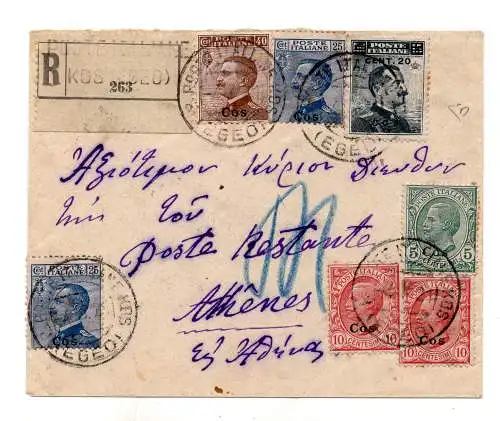 R
KOS (EGEO)
263
POSTE ITALIANE 40
Cos
POSTE ITALIANE 25
Cos
POSTE ITALIANE
CENT. 20
(EGEO)
(EGEO)
Ἀξιότιμον Κύριον Διευθυν
τὴν τοῦ
Poste Restante
Athènes
Εἰς Ἀθήνας
POSTE ITALIANE
5 5
POSTE ITALIANE 25
Cos
KOS
(EGEO)
POSTE ITALIANE
Cos
10 CENTESIMI 10
POSTE ITALIANE
Cos
10 CENTESIMI 10
KOS